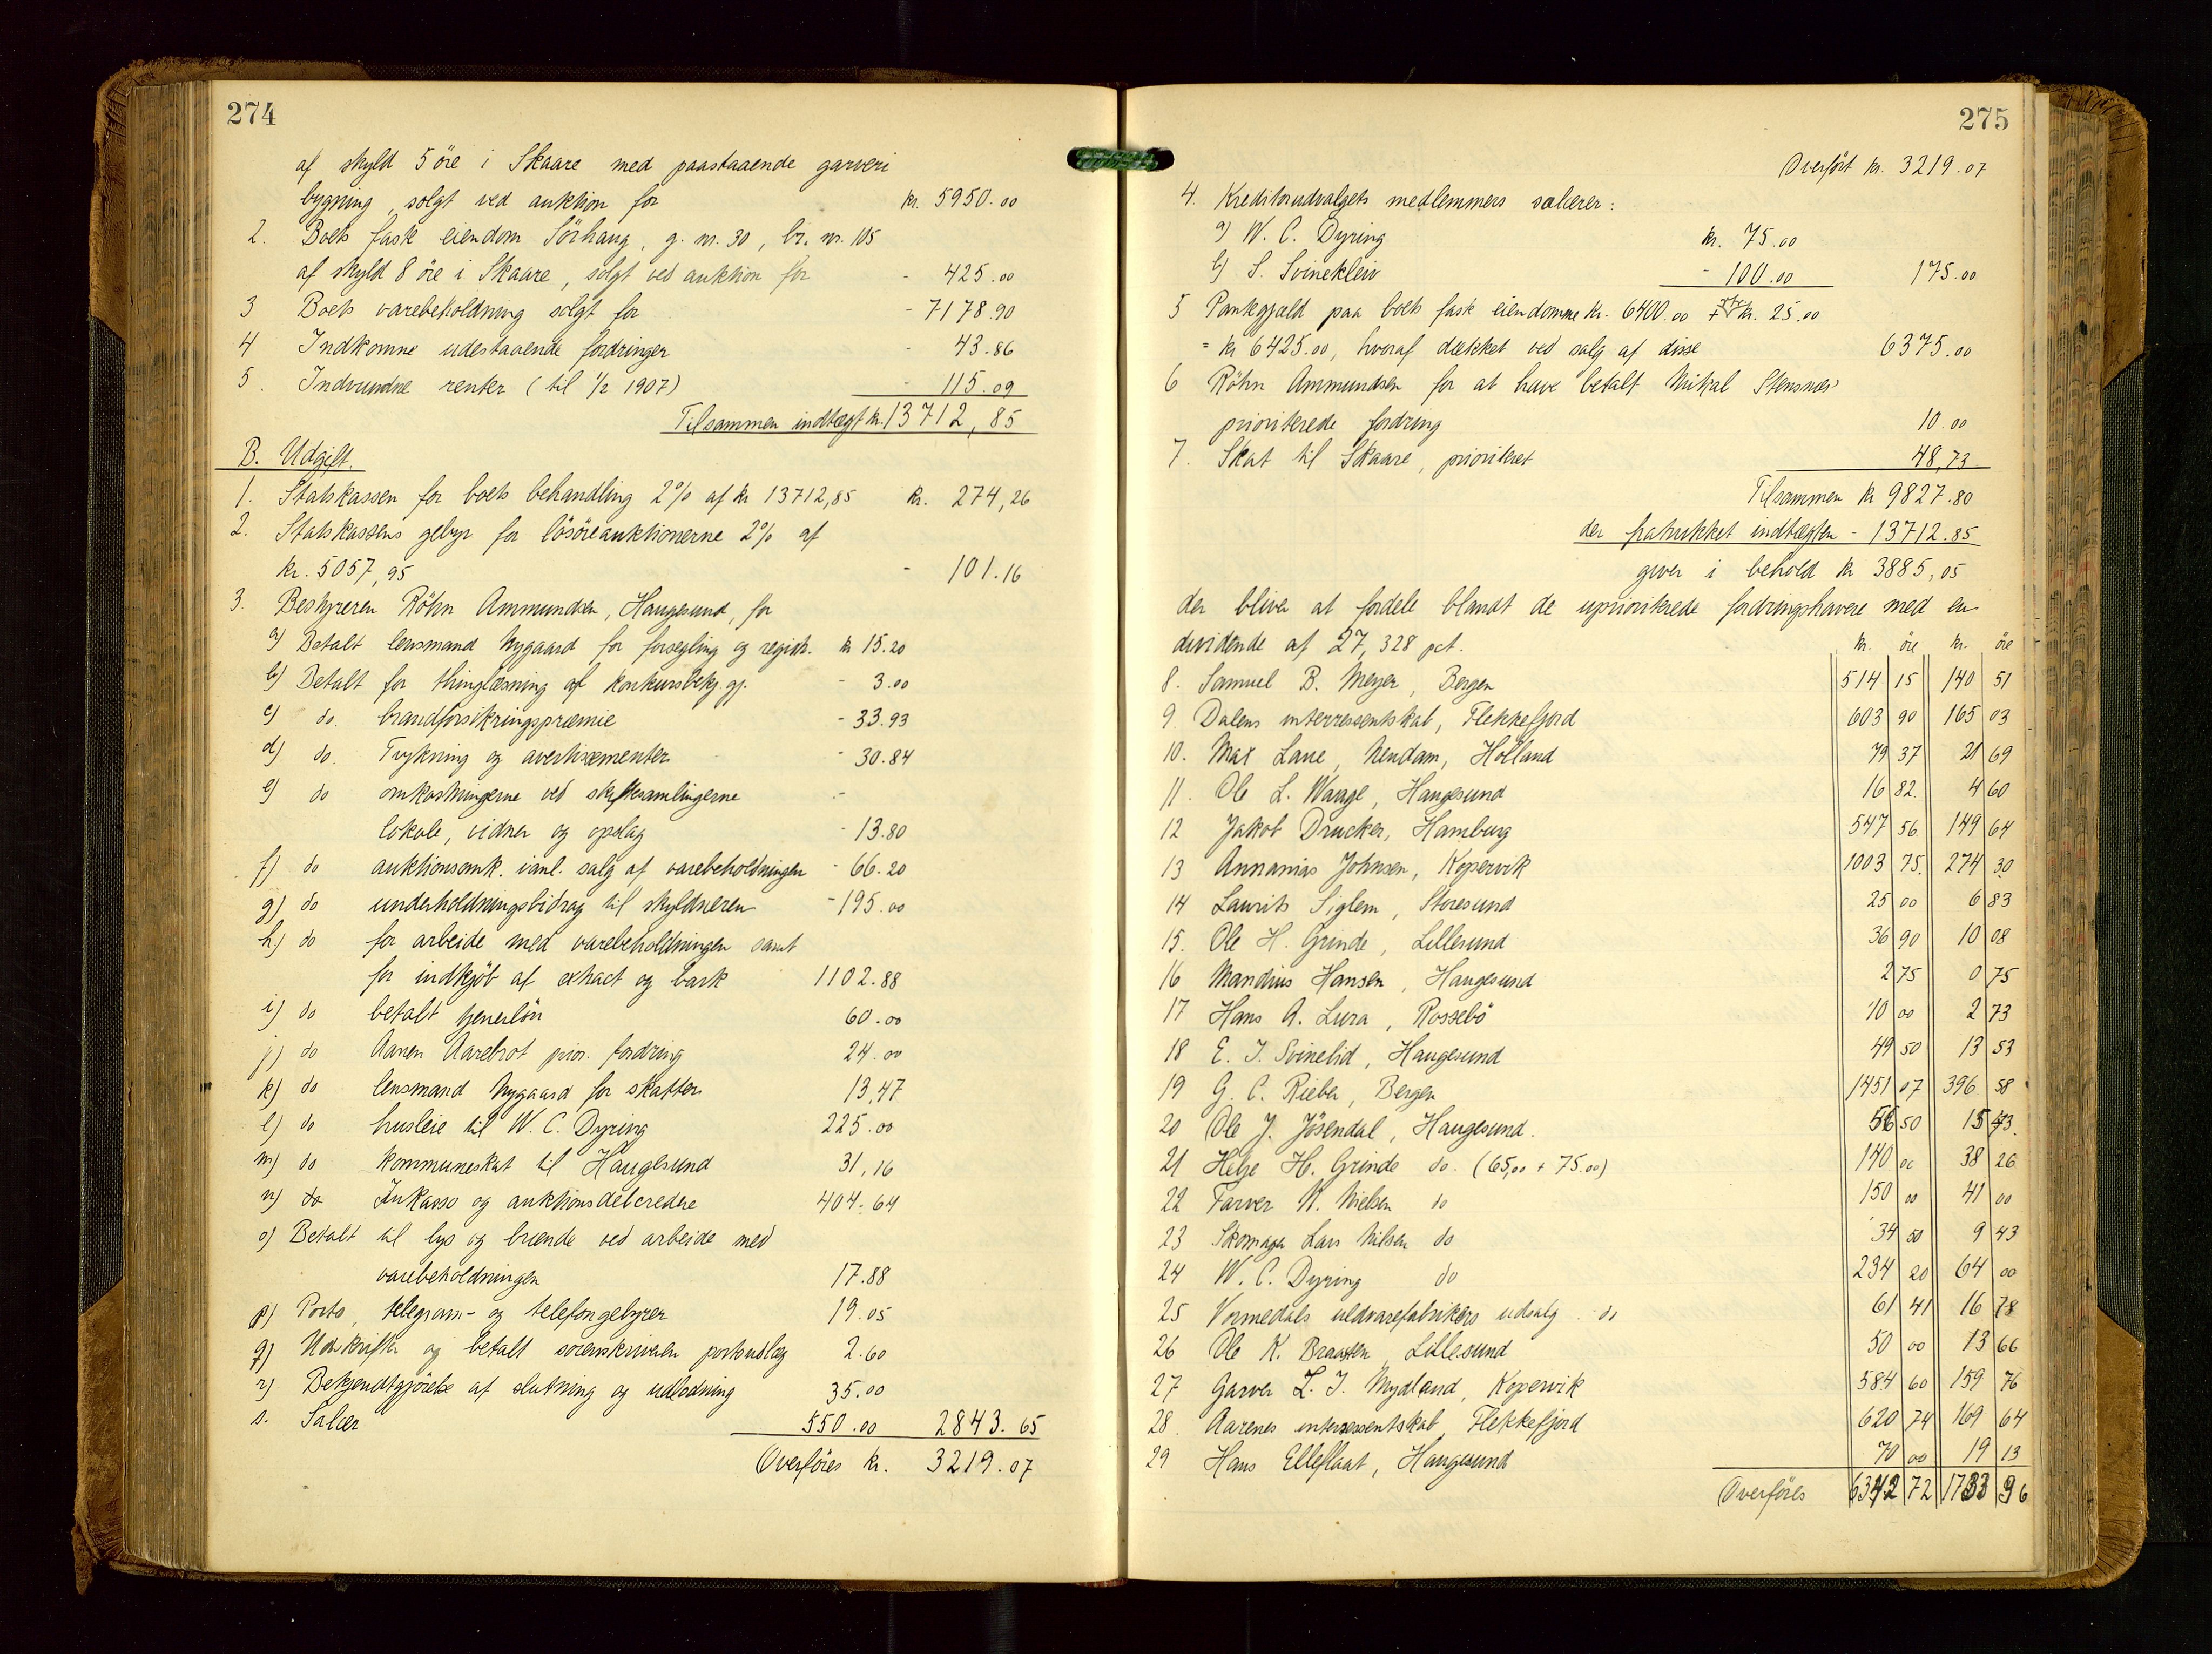 274
af skyld 5 öre i Skaare med paastaaende garveri
bygning, solgt ved auktion for kr. 5950.00
2. Boets faste eiendom Sörhaug, g. nr. 30, br. nr. 105
af skyld 8 öre i Skaare, solgt ved auktion for - 425.00
3 Boets varebeholdning solgt for - 7178.90
4 Indkomne udestaaende fordringer - 43.86
5. Indvundne renter (til 1/2 1907) - 115.09
Tilsammen indtægt kr. 13712,85
B. Udgift.
1. Statskassen for boets behandling 2% af kr 13712,85 kr. 274,26
2. Statskassens gebyr for lösöreauktionerne 2% af
kr. 5057,95 - 101.16
3. Bestyreren Röhn Ammundsen, Haugesund, for
a) Betalt lensmand Nygaard for forsegling og registr. kr 15.20
b) Betalt for thinglæsning af konkursbekj.gj. - 3.00
c) do. brandforsikringspræmie - 33.93
d) do. Trykning og avertissementer - 30.84
e) do omkostningerne ved skiftesamlingerne -
lokale, vidner og opslag - 13.80
f) do auktionsomk. ianl. salg af varebeholdningen - 66.20
g) do underholdningsbidrag til skyldneren - 195.00
h) do for arbeide med varebeholdningen samt
for indkjöb af extract og bark 1102.88
i) do betalt tjenerlön 60.00
j) do Aanen Aarebrot prior. fordring 24.00
k) do lensmand Nygaard for skatter 13,47
l) do husleie til W. C. Dyring 225.00
m) do kommuneskat til Haugesund 31,16
n) do Inkasso og auktionsdelcredere 404.64
o) Betalt til lys og brænde ved arbeide med
varebeholdningen 17.88
p) Porto, telegram- og telefongebyrer 19.05
q) Udskrifter og betalt sorenskriveren portoudlæg 2.60
r) Bekjendtgjörelse af slutning og udlodning 35.00
s. Salær 550.00 2843.65
Overföres kr. 3219.07
275
Overfört kr. 3219.07
4. Kreditorudvalgets medlemmers salærer:
a) W. C. Dyring kr. 75.00
b) S. Svinekleiv - 100.00 175.00
5 Pantegjæld paa boets faste eiendomme kr. 6400.00 + kr. 25.00
= kr 6425.00, hvoraf dækket ved salg af disse 6375.00
6 Röhn Ammundsen for at have betalt Mikal Stensnæs
prioriterede fordring 10.00
7. Skat til Skaare, prioriteret 48,73
Tilsammen kr 9827.80
der fratrukket indtægten - 13712.85
giver i behold kr 3885,05
der bliver at fordele blandt de uprioriterede fordringshavere med en
dividende af 27,328 pct. kr. öre kr. öre
8. Samuel B. Meyer, Bergen 514 15 140 51
9. Dalens interressentskab, Flekkefjord 603 90 165 03
10. Max Lane, Nendam, Holland 79 37 21 69
11. Ole L. Waage, Haugesund 16 82. 4 60
12 Jakob Drucker, Hamburg 547 56 149 64
13 Annanias Johnsen, Kopervik 1003 75. 274 30
14 Laurits Siglem, Storesund 25 00 6 83
15. Ole H. Grinde, Lillesund 36 90 10 08
16 Mandius Hansen, Haugesund 2 75 0 75
17 Hans A. Lura, Rossebö 10 00 2 73
18 E. J. Svinelid, Haugesund 49 50 13 53
19 G. C. Rieber, Bergen 1451 07 396 58
20 Ole J. Jösendal, Haugesund. 56 50 15 43.
21 Helge H. Grinde do. (65,00 + 75.00) 140 00 38 26
22 Farver N. Nielsen do 150 00 41 00
23 Skomager Lars Nilsen do 34 50 9 43
24 W. C. Dyring do 234 20 64 00
25 Vormedals uldvarefabrikers udsalg do 61 41 16 78
26 Ole K. Braaten, Lillesund 50 00 13 66
27 Garver L. J. Mydland, Kopervik 584 60 159 76
28. Aarenes interressentskab, Flekkefjord 620 74 169 64
29 Hans Elleflaat, Haugesund 70 00 19 13
Overföres 6342 72 1733 96